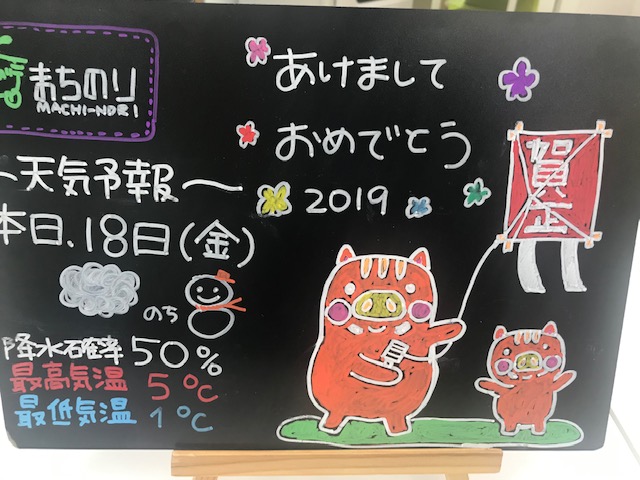 まちのり
MACHI-NORI
あけまして
おめでとう
2019
賀正
〜天気予報〜
本日.18日(金)
のち
降水確率50%
最高気温 5℃
最低気温 1℃